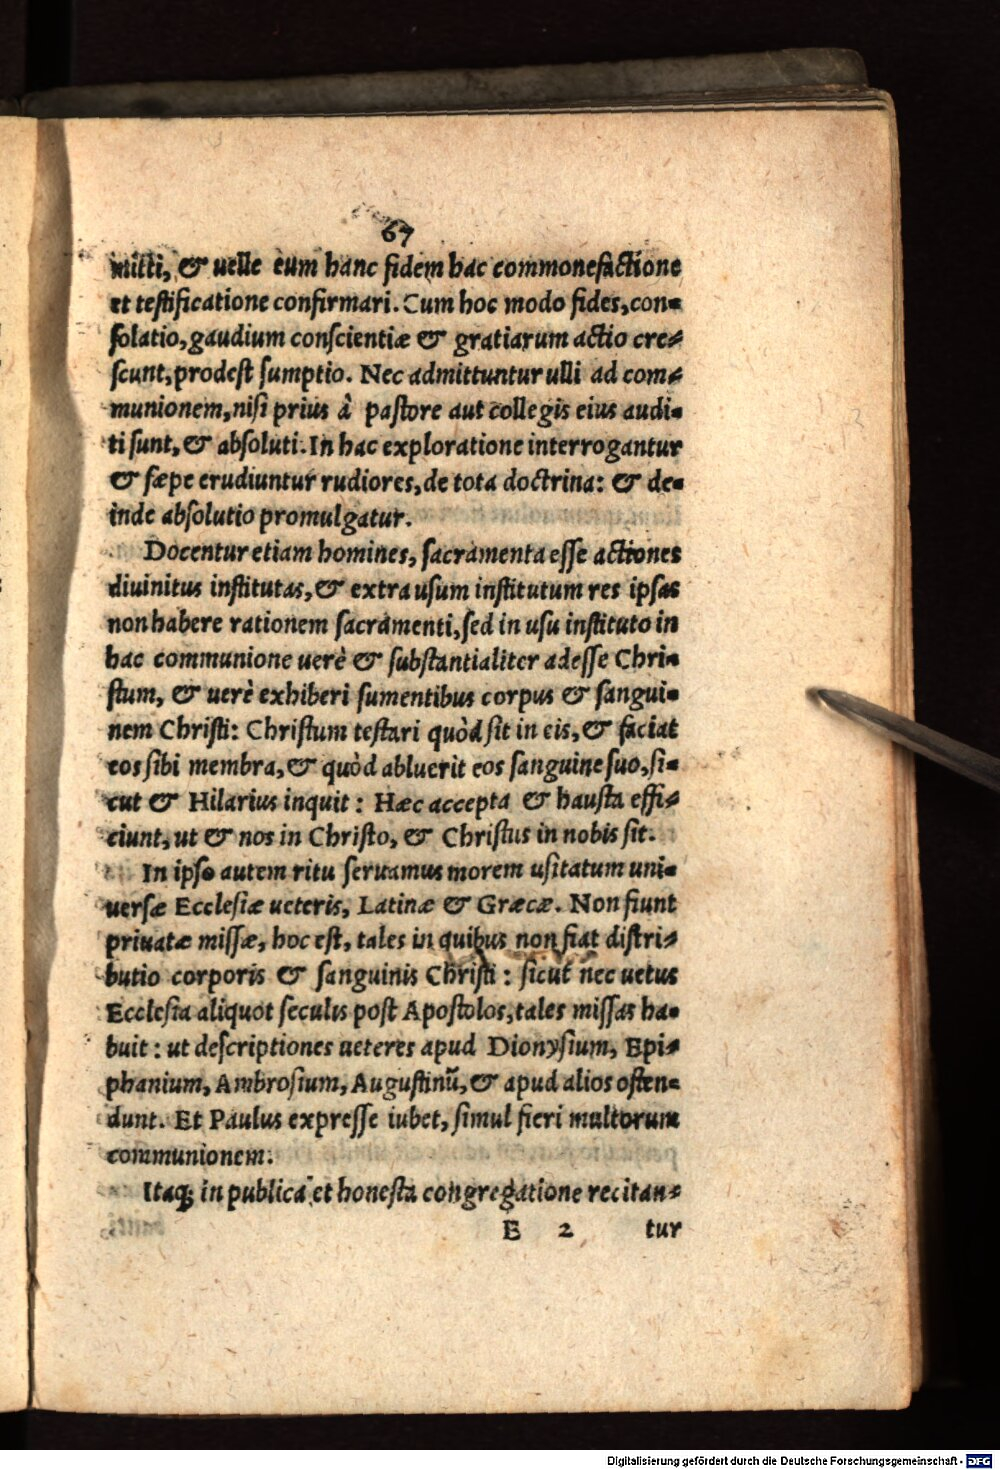 67
mitti, & uelle eum hanc fidem hac commonefactione
et testificatione confirmari. Cum hoc modo fides, con-
solatio, gaudium conscientiæ & gratiarum actio cre-
scunt, prodest sumptio. Nec admittuntur ulli ad com-
munionem, nisi prius à pastore aut collegis eius audi-
ti sunt, & absoluti. In hac exploratione interrogantur
& sæpe erudiuntur rudiores, de tota doctrina: & de-
inde absolutio promulgatur.
Docentur etiam homines, sacramenta esse actiones
diuinitus institutas, & extra usum institutum res ipsas
non habere rationem sacramenti, sed in usu instituto in
hac communione uerè & substantialiter adesse Chri-
stum, & uerè exhiberi sumentibus corpus & sangui-
nem Christi: Christum testari quòd sit in eis, & faciat
eos sibi membra, & quòd abluerit eos sanguine suo, si-
cut & Hilarius inquit: Hæc accepta & hausta effi-
ciunt, ut & nos in Christo, & Christus in nobis sit.
In ipso autem ritu seruamus morem usitatum uni-
uersæ Ecclesiæ ueteris, Latinæ & Græcæ. Non fiunt
priuatæ missæ, hoc est, tales in quibus non fiat distri-
butio corporis & sanguinis Christi: sicut nec uetus
Ecclesia aliquot seculis post Apostolos, tales missas ha-
buit: ut descriptiones ueteres apud Dionysium, Epi-
phanium, Ambrosium, Augustinū, & apud alios osten-
dunt. Et Paulus expresse iubet, simul fieri multorum
communionem.
Itaq; in publica et honesta congregatione recitan-
E 2 tur
Digitalisierung gefördert durch die Deutsche Forschungsgemeinschaft - DFG